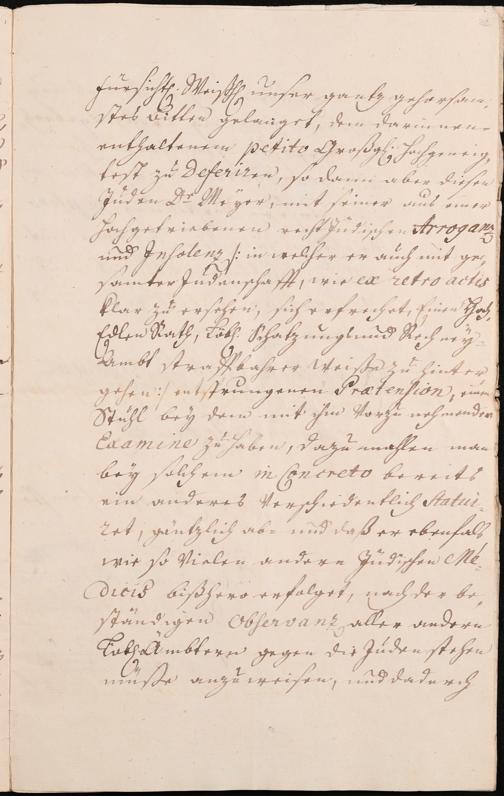 fürsichtl. Weißh. unser gantz gehorsam,
stes Bitten gelanget, dem darinnen
enthaltenem petito Großgl. hochgeneig,
test zu Deferiren, so dann aber diesen
Juden Dr. Meyer, mit seiner aus einer
hochgetriebenen recht Jüdischen Arroganz
und Insolenz /: in welcher er auch mit ge,
samter Judenschafft, wie ex retro actis
klar zu ersehen, sich erfrechet, Einen Hoch
Edlen Rath, Löbl. Schatzungs und Rechney-
Ambt straffbahrer Weiße zu hinter
gehen :/ entsprungenen Prætension, einen
Stuhl bey dem mit ihm vorzunehmenden
Examine zu haben, dazumahlen man
bey solchem in Concreto bereits
ein anderes verschiedentlich Statui-
ret, gäntzlich ab- und daß er ebenfals
wie so vielen andern Jüdischen Me-
dicis bißhero erfolget, nach der be,
ständigen Observanz aller andern
Löbl. Ämbtern gegen die Juden stehen
müße anzuweisen, und dadurch